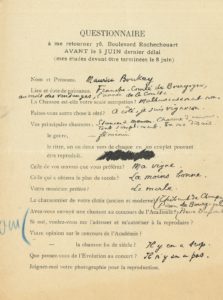 QUESTIONNAIRE
à me retourner 78, Boulevard Rochechouart
AVANT le 5 JUIN dernier délai
(mes études devant être terminées le 8 juin)
Nom et Prénoms. Maurice Boukay
Lieu et date de naissance. Franche-Comté de Bourgogne,
au mois des vendanges, l'année de la Comète
La Chanson est-elle votre seule occupation? Malheureusement non.
Faites-vous autre chose à côté? A côté, je suis vigneron
Vos principales chansons.
le genre, féminin
en citer une ou deux types de chaque en un couplet
pouvant être reproduit.
Celle de vos œuvres que vous préférez? Ma vigne.
Celle qui a obtenu le plus de succès? La moins bonne.
Votre musicien préféré? Le merle
Le chansonnier de votre dilection (ancien et moderne)?
Avez-vous envoyé une chanson au concours de l'Académie?
Si oui, voulez-vous me l'adresser et m'autoriser à la reproduire?
Votre opinion sur le concours de l'Académie?
— la chanson fin de siècle? Il y en a trop.
Que pensez-vous de l'Évolution au concert? Il n'y en a pas.
Joignez-moi votre photographie pour la reproduction.
oui